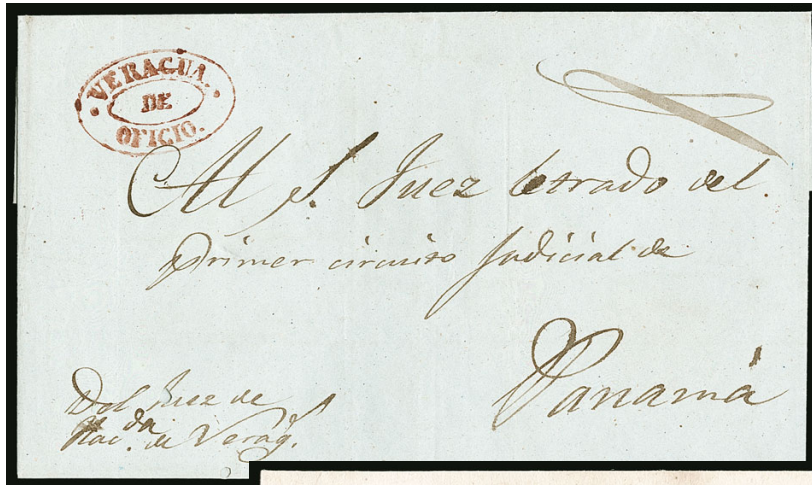 VERAGUA.
DE
OFICIO.
Al S. Juez letrado del.
Primer circuito Judicial de
Panamá
Del Juez de
Hac.da de Verag.s